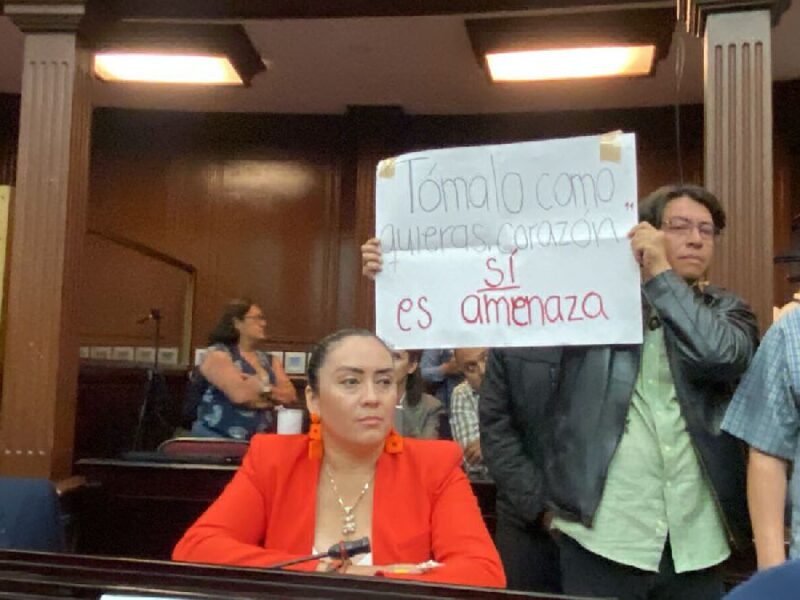 Tómalo como
quieras, corazón..
sí
es amenaza